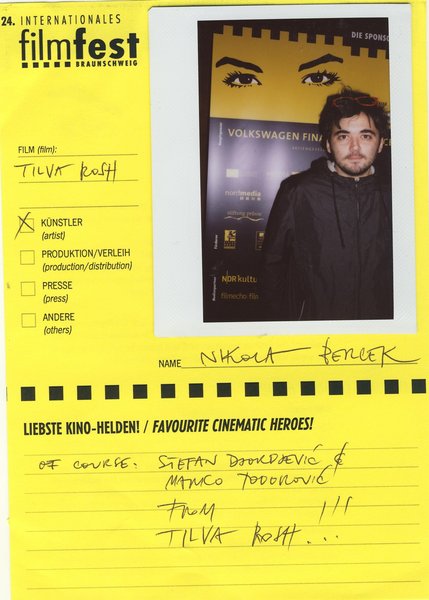 24. INTERNATIONALES
filmfest
BRAUNSCHWEIG
DIE SPONSO
VOLKSWAGEN FINA
nordmedia
NDR kultu
filmecho film
FILM (film):
TILVA ROSH
KÜNSTLER
(artist)
PRODUKTION/VERLEIH
(production/distribution)
PRESSE
(press)
ANDERE
(others)
NAME NIKOLA BERČEK
LIEBSTE KINO-HELDEN! / FAVOURITE CINEMATIC HEROES!
OF COURSE: STEFAN DJORDJEVIĆ &
MARKO TODOROVIĆ
FROM !!!
TILVA ROSH...